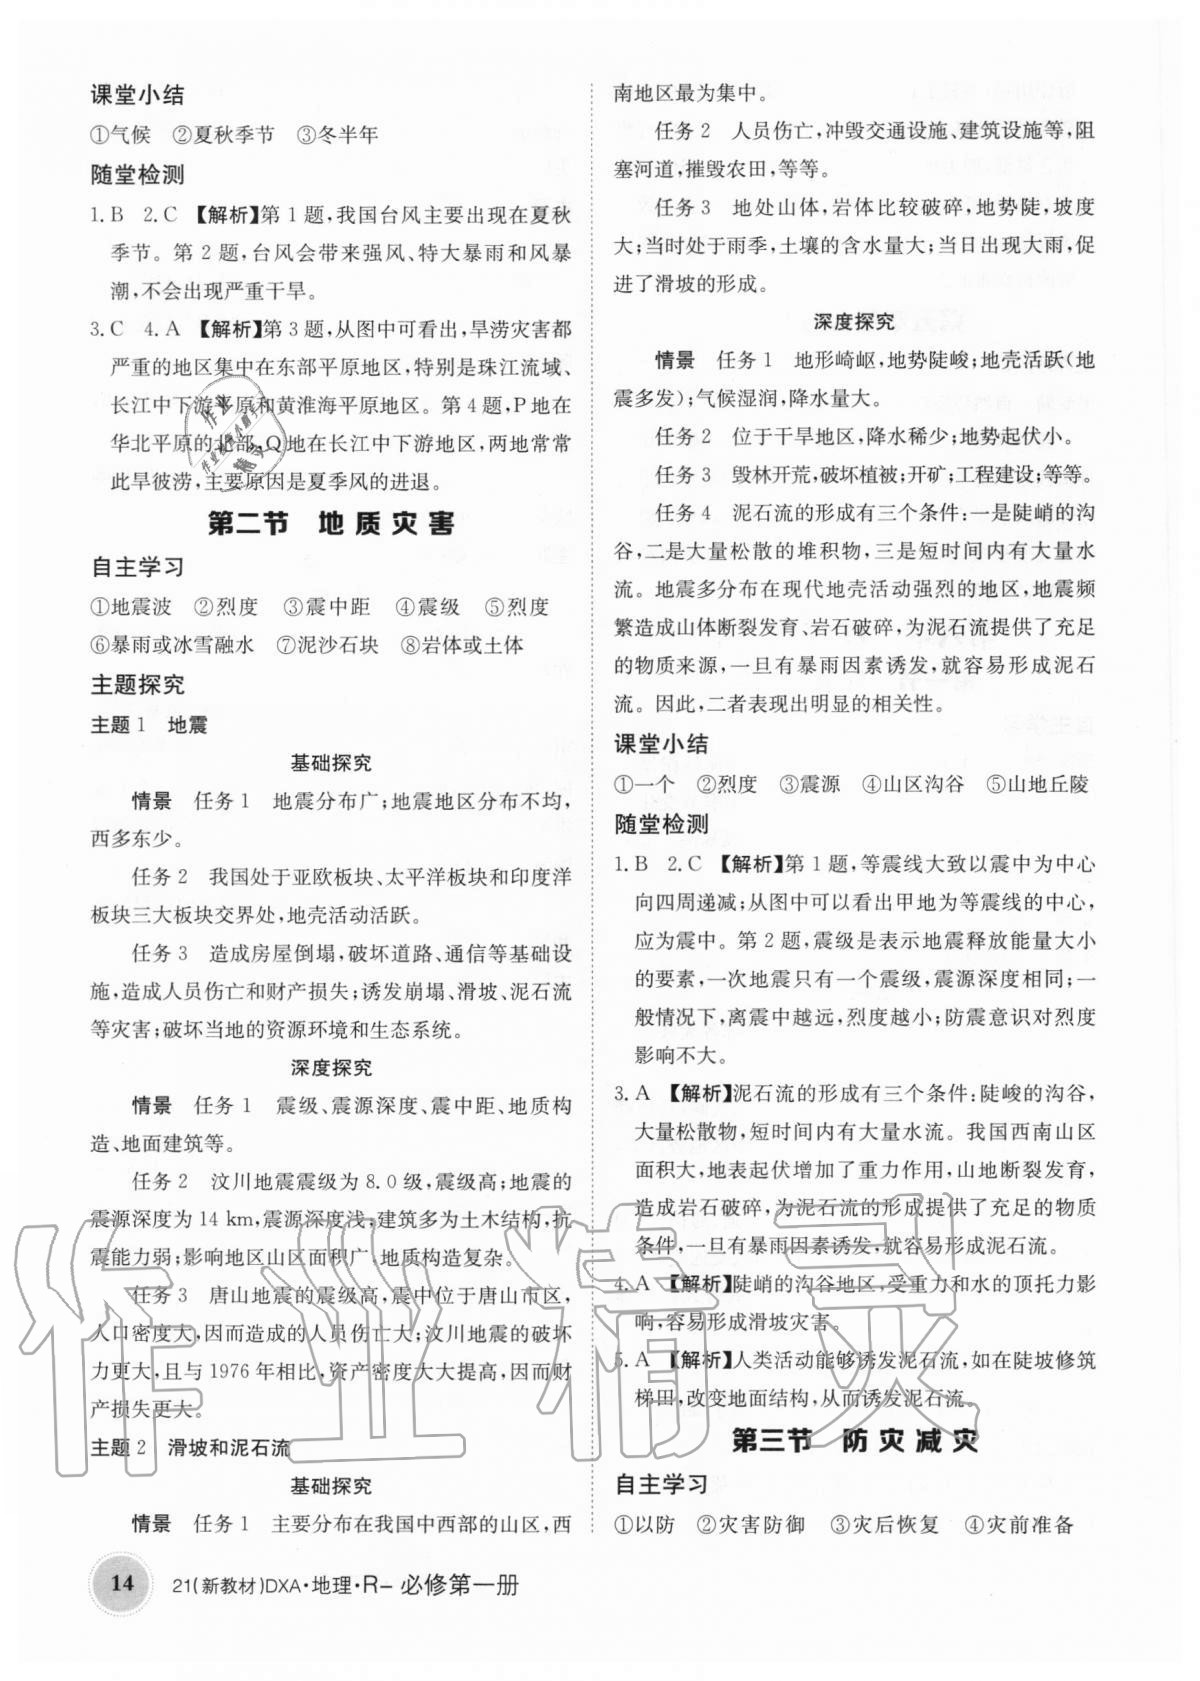 课堂小结
①气候 ②夏秋季节 ③冬半年
随堂检测
1.B 2.C 【解析】第 1 题,我国台风主要出现在夏秋
季节。第 2 题,台风会带来强风、特大暴雨和风暴
潮,不会出现严重干旱。
3.C 4.A 【解析】第 3 题,从图中可看出,旱涝灾害都
严重的地区集中在东部平原地区,特别是珠江流域、
长江中下游平原和黄淮海平原地区。第 4 题,P 地在
华北平原的北部,Q 地在长江中下游地区,两地常常
此旱彼涝,主要原因是夏季风的进退。
第二节 地质灾害
自主学习
①地震波 ②烈度 ③震中距 ④震级 ⑤烈度
⑥暴雨或冰雪融水 ⑦泥沙石块 ⑧岩体或土体
主题探究
主题 1 地震
基础探究
情景 任务 1 地震分布广;地震地区分布不均,
西多东少。
任务 2 我国处于亚欧板块、太平洋板块和印度洋
板块三大板块交界处,地壳活动活跃。
任务 3 造成房屋倒塌,破坏道路、通信等基础设
施,造成人员伤亡和财产损失;诱发崩塌、滑坡、泥石流
等灾害;破坏当地的资源环境和生态系统。
深度探究
情景 任务 1 震级、震源深度、震中距、地质构
造、地面建筑等。
任务 2 汶川地震震级为 8.0 级,震级高;地震的
震源深度为 14 km,震源深度浅;建筑多为土木结构,抗
震能力弱;影响地区山区面积广,地质构造复杂。
任务 3 唐山地震的震级高,震中位于唐山市区,
人口密度大,因而造成的人员伤亡大;汶川地震的破坏
力更大,且与 1976 年相比,资产密度大大提高,因而财
产损失更大。
主题 2 滑坡和泥石流
基础探究
情景 任务 1 主要分布在我国中西部的山区,西
南地区最为集中。
任务 2 人员伤亡,冲毁交通设施、建筑设施等,阻
塞河道,摧毁农田,等等。
任务 3 地处山体,岩体比较破碎,地势陡,坡度
大;当时处于雨季,土壤的含水量大;当日出现大雨,促
进了滑坡的形成。
深度探究
情景 任务 1 地形崎岖,地势陡峻;地壳活跃(地
震多发);气候湿润,降水量大。
任务 2 位于干旱地区,降水稀少;地势起伏小。
任务 3 毁林开荒,破坏植被;开矿;工程建设;等等。
任务 4 泥石流的形成有三个条件:一是陡峭的沟
谷,二是大量松散的堆积物,三是短时间内有大量水
流。地震多分布在现代地壳活动强烈的地区,地震频
繁造成山体断裂发育、岩石破碎,为泥石流提供了充足
的物质来源,一旦有暴雨因素诱发,就容易形成泥石
流。因此,二者表现出明显的相关性。
课堂小结
①一个 ②烈度 ③震源 ④山区沟谷 ⑤山地丘陵
随堂检测
1.B 2.C 【解析】第 1 题,等震线大致以震中为中心
向四周递减;从图中可以看出甲地为等震线的中心,
应为震中。第 2 题,震级是表示地震释放能量大小
的要素,一次地震只有一个震级,震源深度相同;一
般情况下,离震中越远,烈度越小;防震意识对烈度
影响不大。
3.A 【解析】泥石流的形成有三个条件:陡峻的沟谷,
大量松散物,短时间内有大量水流。我国西南山区
面积大,地表起伏增加了重力作用,山地断裂发育,
造成岩石破碎,为泥石流的形成提供了充足的物质
条件,一旦有暴雨因素诱发,就容易形成泥石流。
4.A 【解析】陡峭的沟谷地区,受重力和水的顶托力影
响,容易形成滑坡灾害。
5.A 【解析】人类活动能够诱发泥石流,如在陡坡修筑
梯田,改变地面结构,从而诱发泥石流。
第三节 防灾减灾
自主学习
①以防 ②灾害防御 ③灾后恢复 ④灾前准备
14 21(新教材)DXA·地理·R-必修第一册
作业精灵